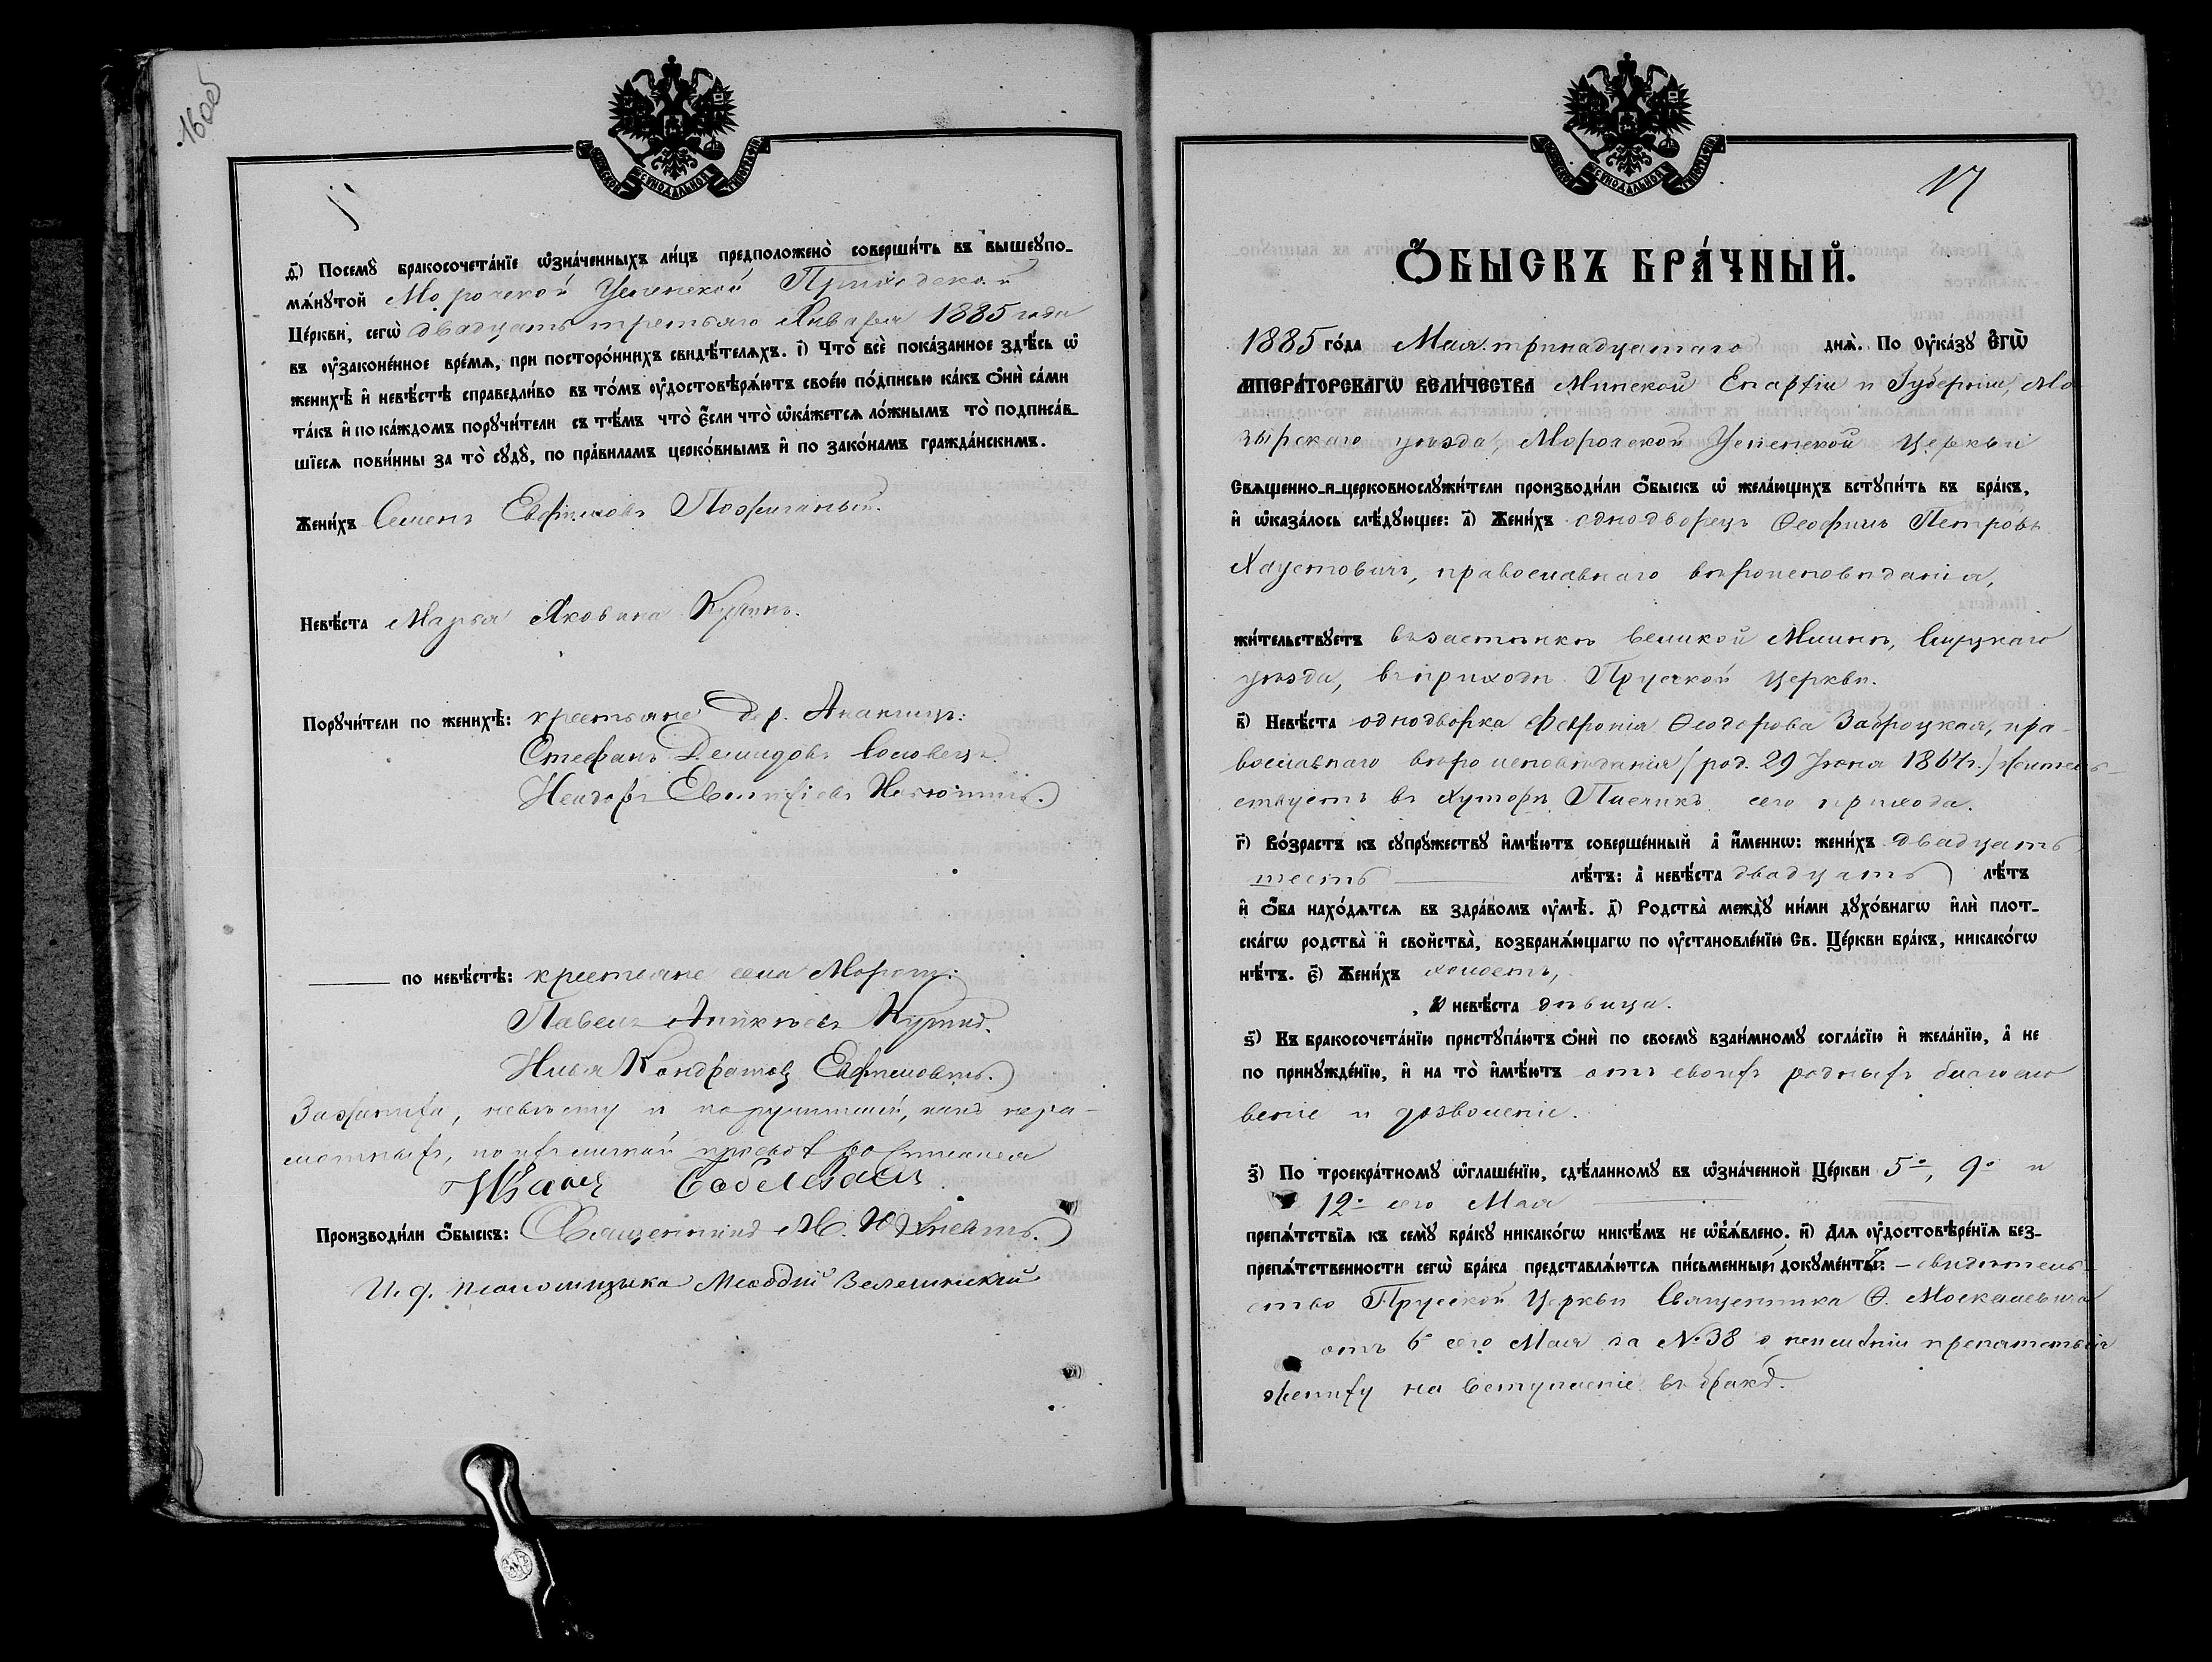 160об
МОСКОВСКОЙ СУНОДАЛЬНОЙ ТИПОГРАФІИ
д҃) Посемꙋ̀ бракосочета́нїе ѡ҆зна́ченныхъ ли́цъ предположено̀ соверши́ть въ вышеꙋпо-
мѧ́нꙋтой Морочской Успенской Приходской
Це́ркви, сегѡ̀ двадцать третьяго Января 1885 года
въ ᲂу҆зако́не́нное вре́мѧ, при посторо́ннихъ свидѣ́телѧхъ. і҃) Что̀ всѐ пока́занное здѣ́сь ѡ҆
женихѣ̀ и҆ невѣ́стѣ справедли́во въ то́мъ ᲂу҆достовѣрѧ́ютъ свое́ю по́дписью ка́къ ѻ҆нѝ са́ми
та́къ и҆ по ка́ждомъ порꙋчи́тели съ тѣ́мъ что̀ є҆́сли что̀ ѡ҆ка́жетсѧ ло́жнымъ то̀ подписа́в-
шїесѧ пови́нны за то̀ сꙋдꙋ̀, по пра́виламъ церко́внымъ и҆ по зако́намъ гражда́нскимъ.
Жени́хъ Семенъ Евфимовъ
Невѣ́ста Марья Яковлева Куринъ.
Порꙋчи́тели по женихѣ̀: крестьяне дер. Ананчиц:
Стефанъ Демидовъ Соловецъ.
по невѣ́стѣ: крестьяне села Мороч:
Павелъ
Илья Кондратовъ Евфимовичъ.
За жениха, невѣсту и поручителей, какъ негра-
мотныхъ, по ихъ личной просьбѣ росписался
Иванъ
Производи́ли ѻ҆́быскъ: Священникъ
И. д. псаломщика Меѳодій
17
МОСКОВСКОЙ СУНОДАЛЬНОЙ ТИПОГРАФІИ
Ѻ҆́БЫСКЪ БРА́ЧНЫЙ.
1885 го́да Мая тринадцатаго днѧ̀. По Оу҆ка́зꙋ Є҆ГѠ̀
И҆МПЕРА́ТОРСКАГѠ ВЕЛИ́ЧЕСТВА Минской Епархіи и Губерніи, Мо-
зырскаго уѣзда, Морочской Успенской церкви
Свѧщенно-и-церковнослꙋжи́тели производи́ли ѻ҆́быскъ ѡ҆ жела́ющихъ встꙋпи́ть въ бра́къ,
и҆ ѡ҆каза́лось слѣ́дꙋющее: а҃) Жени́хъ однодворецъ Ѳеофилъ Петровъ
Хаустовичъ, православнаго вѣроисповѣданія,
жи́тельствꙋетъ въ застѣнкѣ Великой Млынкѣ, Слуцкаго
уѣзда, въ приходѣ Прусской церкви.
в҃) Невѣ́ста однодворка Февронія Ѳеодорова Заброцкая, пра-
вославнаго вѣроисповѣданія (род. 29 Іюня 1864 г.) житель-
ствуетъ въ хуторѣ Пасѣкѣ сего прихода.
г҃) Во́зрастъ къ сꙋпрꙋ́жествꙋ и҆мѣ́ютъ соверше́нный а҆̀ и҆́меннѡ: жени́хъ двадцать
шесть лѣ́тъ: а҆̀ невѣ́ста двадцать лѣ́тъ
и҆ ѻ҆́ба нахо́дѧтсѧ въ здра́вомъ ᲂу҆мѣ̀. д҃) Родства̀ междꙋ̀ ни́ми дꙋхо́внагѡ и҆лѝ плот-
ска́гѡ родства̀ и҆ сво́йства̀, возбранѧ́ющагѡ по ᲂу҆становле́нїю Св. Це́ркви бра́къ, никако́гѡ
нѣ́тъ. є҃) Жени́хъ холостъ,
а҆ невѣ́ста дѣвица.
ѕ҃) Къ бракосочета́нїю пристꙋпа́ютъ ѻ҆нѝ по своемꙋ̀ взаи́мномꙋ согла́сїю и҆ жела́нїю, а҆̀ не
по принꙋжде́нїю, и҆ на то̀ и҆мѣ́ютъ отъ своихъ родныхъ благосло-
веніе и дозволеніе.
з҃) По троекра́тномꙋ ѡ҆глаше́нїю, сдѣ́ланномꙋ въ ѡ҆зна́ченной Це́ркви 5го, 9го и
12го сего Мая
препѧ́тствїѧ къ семꙋ̀ бра́кꙋ никако́гѡ никѣ́мъ не ѡ҆б̾ѧ́влено. и҃) Длѧ ᲂу҆достовѣре́нїѧ без-
препѧ́тственности сегѡ̀ бра́ка представлѧ́ютсѧ пи́сьменный докꙋме́нтъ: – свидѣтель-
ство Прусской церкви Священника Ѳ. Москалевича
отъ 6го сего Мая за №38 о неимѣніи препятствія
жениху на вступленіе въ бракъ.